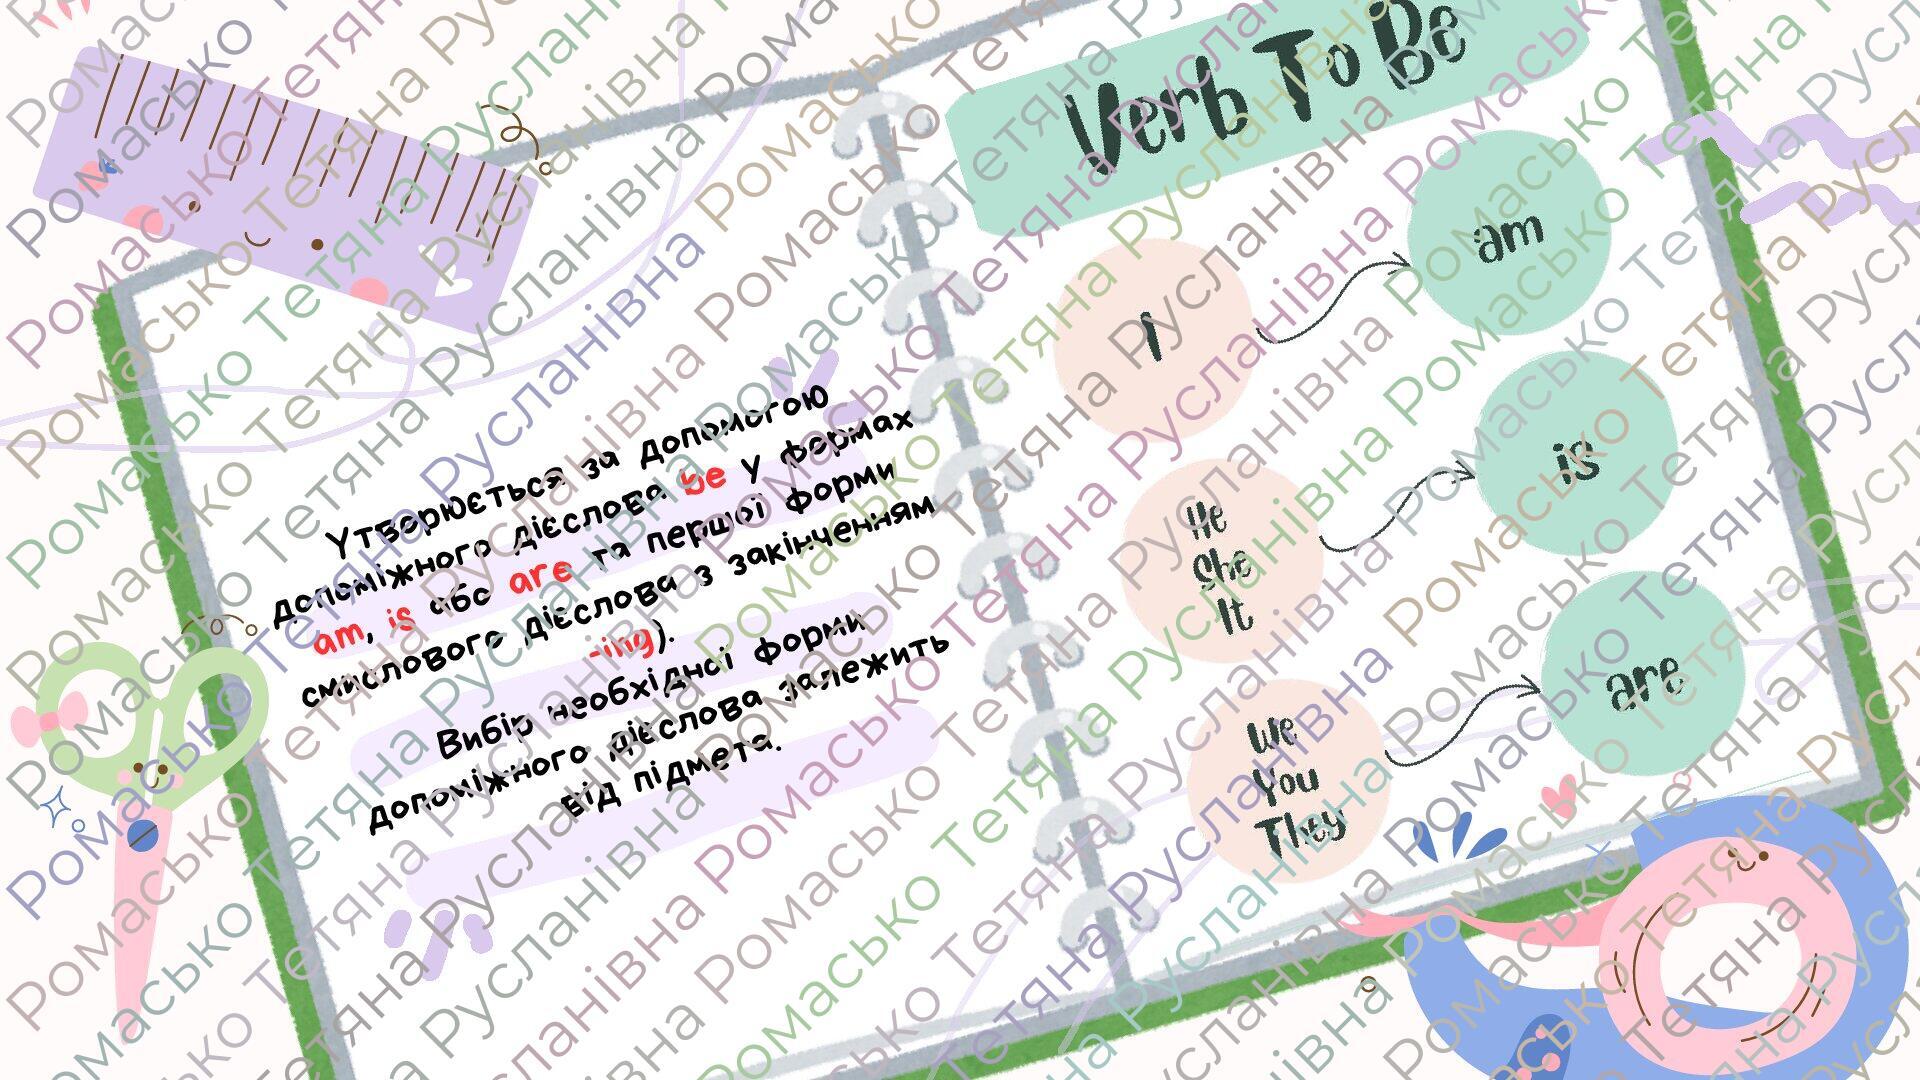 Утворюється за допомогою
допоміжного дієслова be у формах
am, is або are та першої форми
смислового дієслова з закінченням
-ing).
Вибір необхідної форми
допоміжного дієслова залежить
від підмета.
Verb To Be
I
am
He
She
It
is
We
You
They
are
Ромасько Тетяна Русланівна